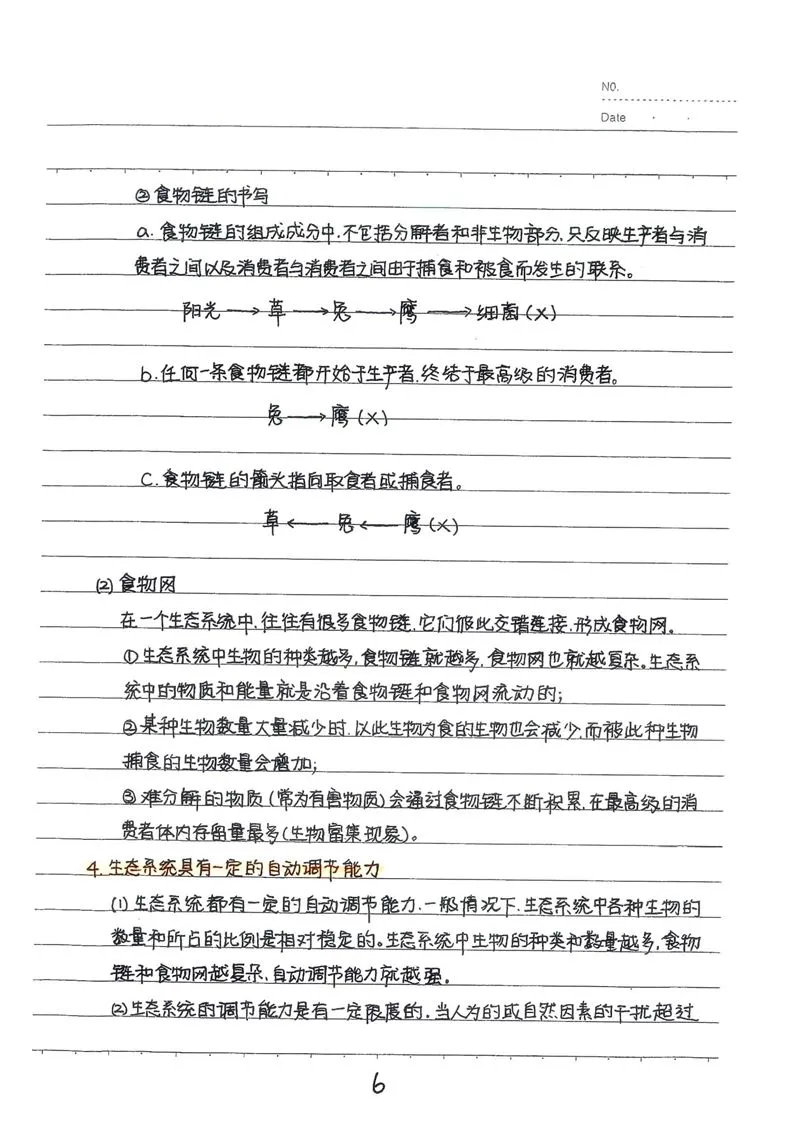 NO.
Date
②食物链的书写
a.食物链的组成成分中,不包括分解者和非生物部分,只反映生产者与消
费者之间以及消费者与消费者之间由于捕食和被食而发生的联系。
阳光→草→兔→鹰→细菌(X)
b.任何一条食物链都开始于生产者,终结于最高级的消费者。
兔→鹰(X)
C.食物链的箭头指向取食者或捕食者。
草←兔←鹰(X)
(2)食物网
在一个生态系统中,往往有很多食物链,它们彼此交错连接,形成食物网。
①生态系统中生物的种类越多,食物链就越多,食物网也就越复杂。生态系
统中的物质和能量就是沿着食物链和食物网流动的;
②某种生物数量大量减少时,以此生物为食的生物也会减少,而被此种生物
捕食的生物数量会增加;
③难分解的物质(常为有害物质)会通过食物链不断积累,在最高级的消
费者体内存留量最多(生物富集现象)。
4.生态系统具有一定的自动调节能力
(1)生态系统都有一定的自动调节能力,一般情况下,生态系统中各种生物的
数量和所占的比例是相对稳定的。生态系统中生物的种类和数量越多,食物
链和食物网越复杂,自动调节能力就越强。
(2)生态系统的调节能力是有一定限度的,当人为的或自然因素的干扰超过
6